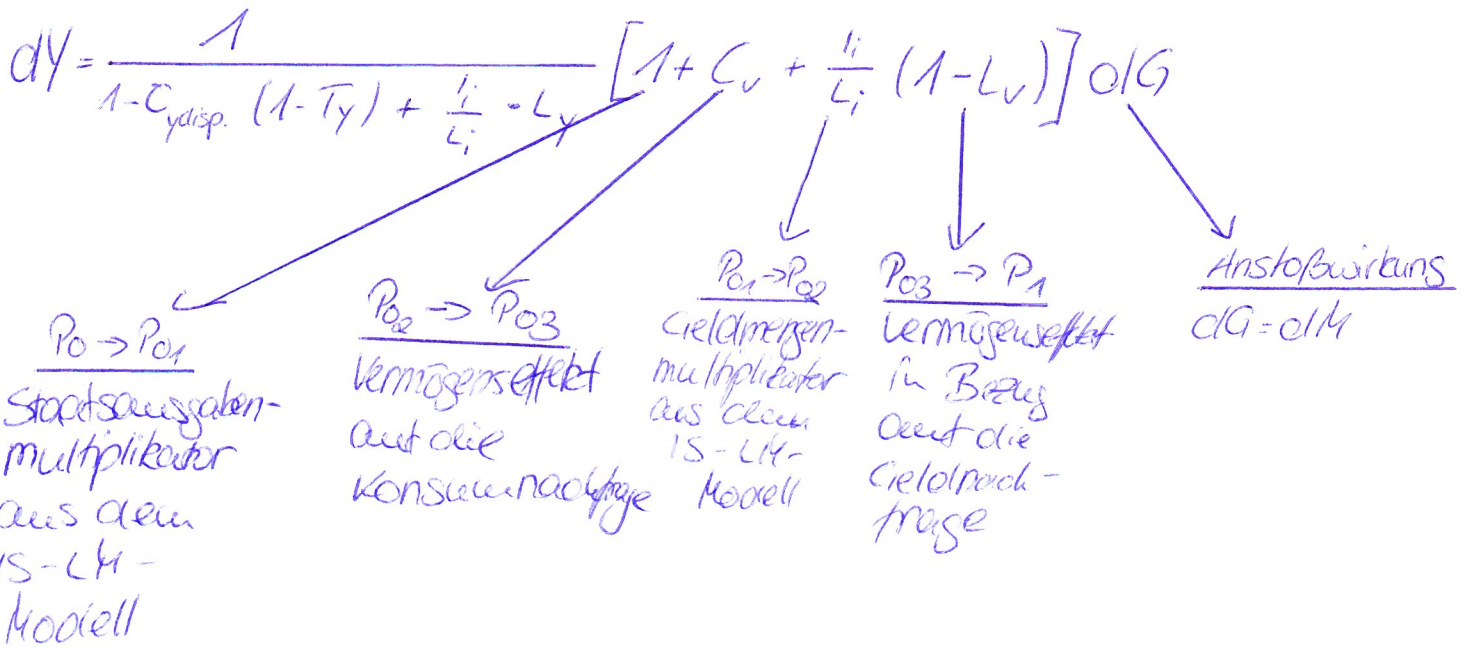 dY = 1 / (1 - C_ydisp. (1 - T_Y) + I_i/L_i · L_Y) [1 + C_V + I_i/L_i (1 - L_V)] dG
P0 → P01
Staatsausgaben-
multiplikator
aus dem
IS-LM-
Modell
P02 → P03
Vermögenseffekt
auf die
Konsumnachfrage
P01 → P02
Geldmengen-
multiplikator
aus dem
IS-LM-
Modell
P03 → P1
Vermögenseffekt
in Bezug
auf die
Geldnach-
frage
Anstoßwirkung
dG = dM